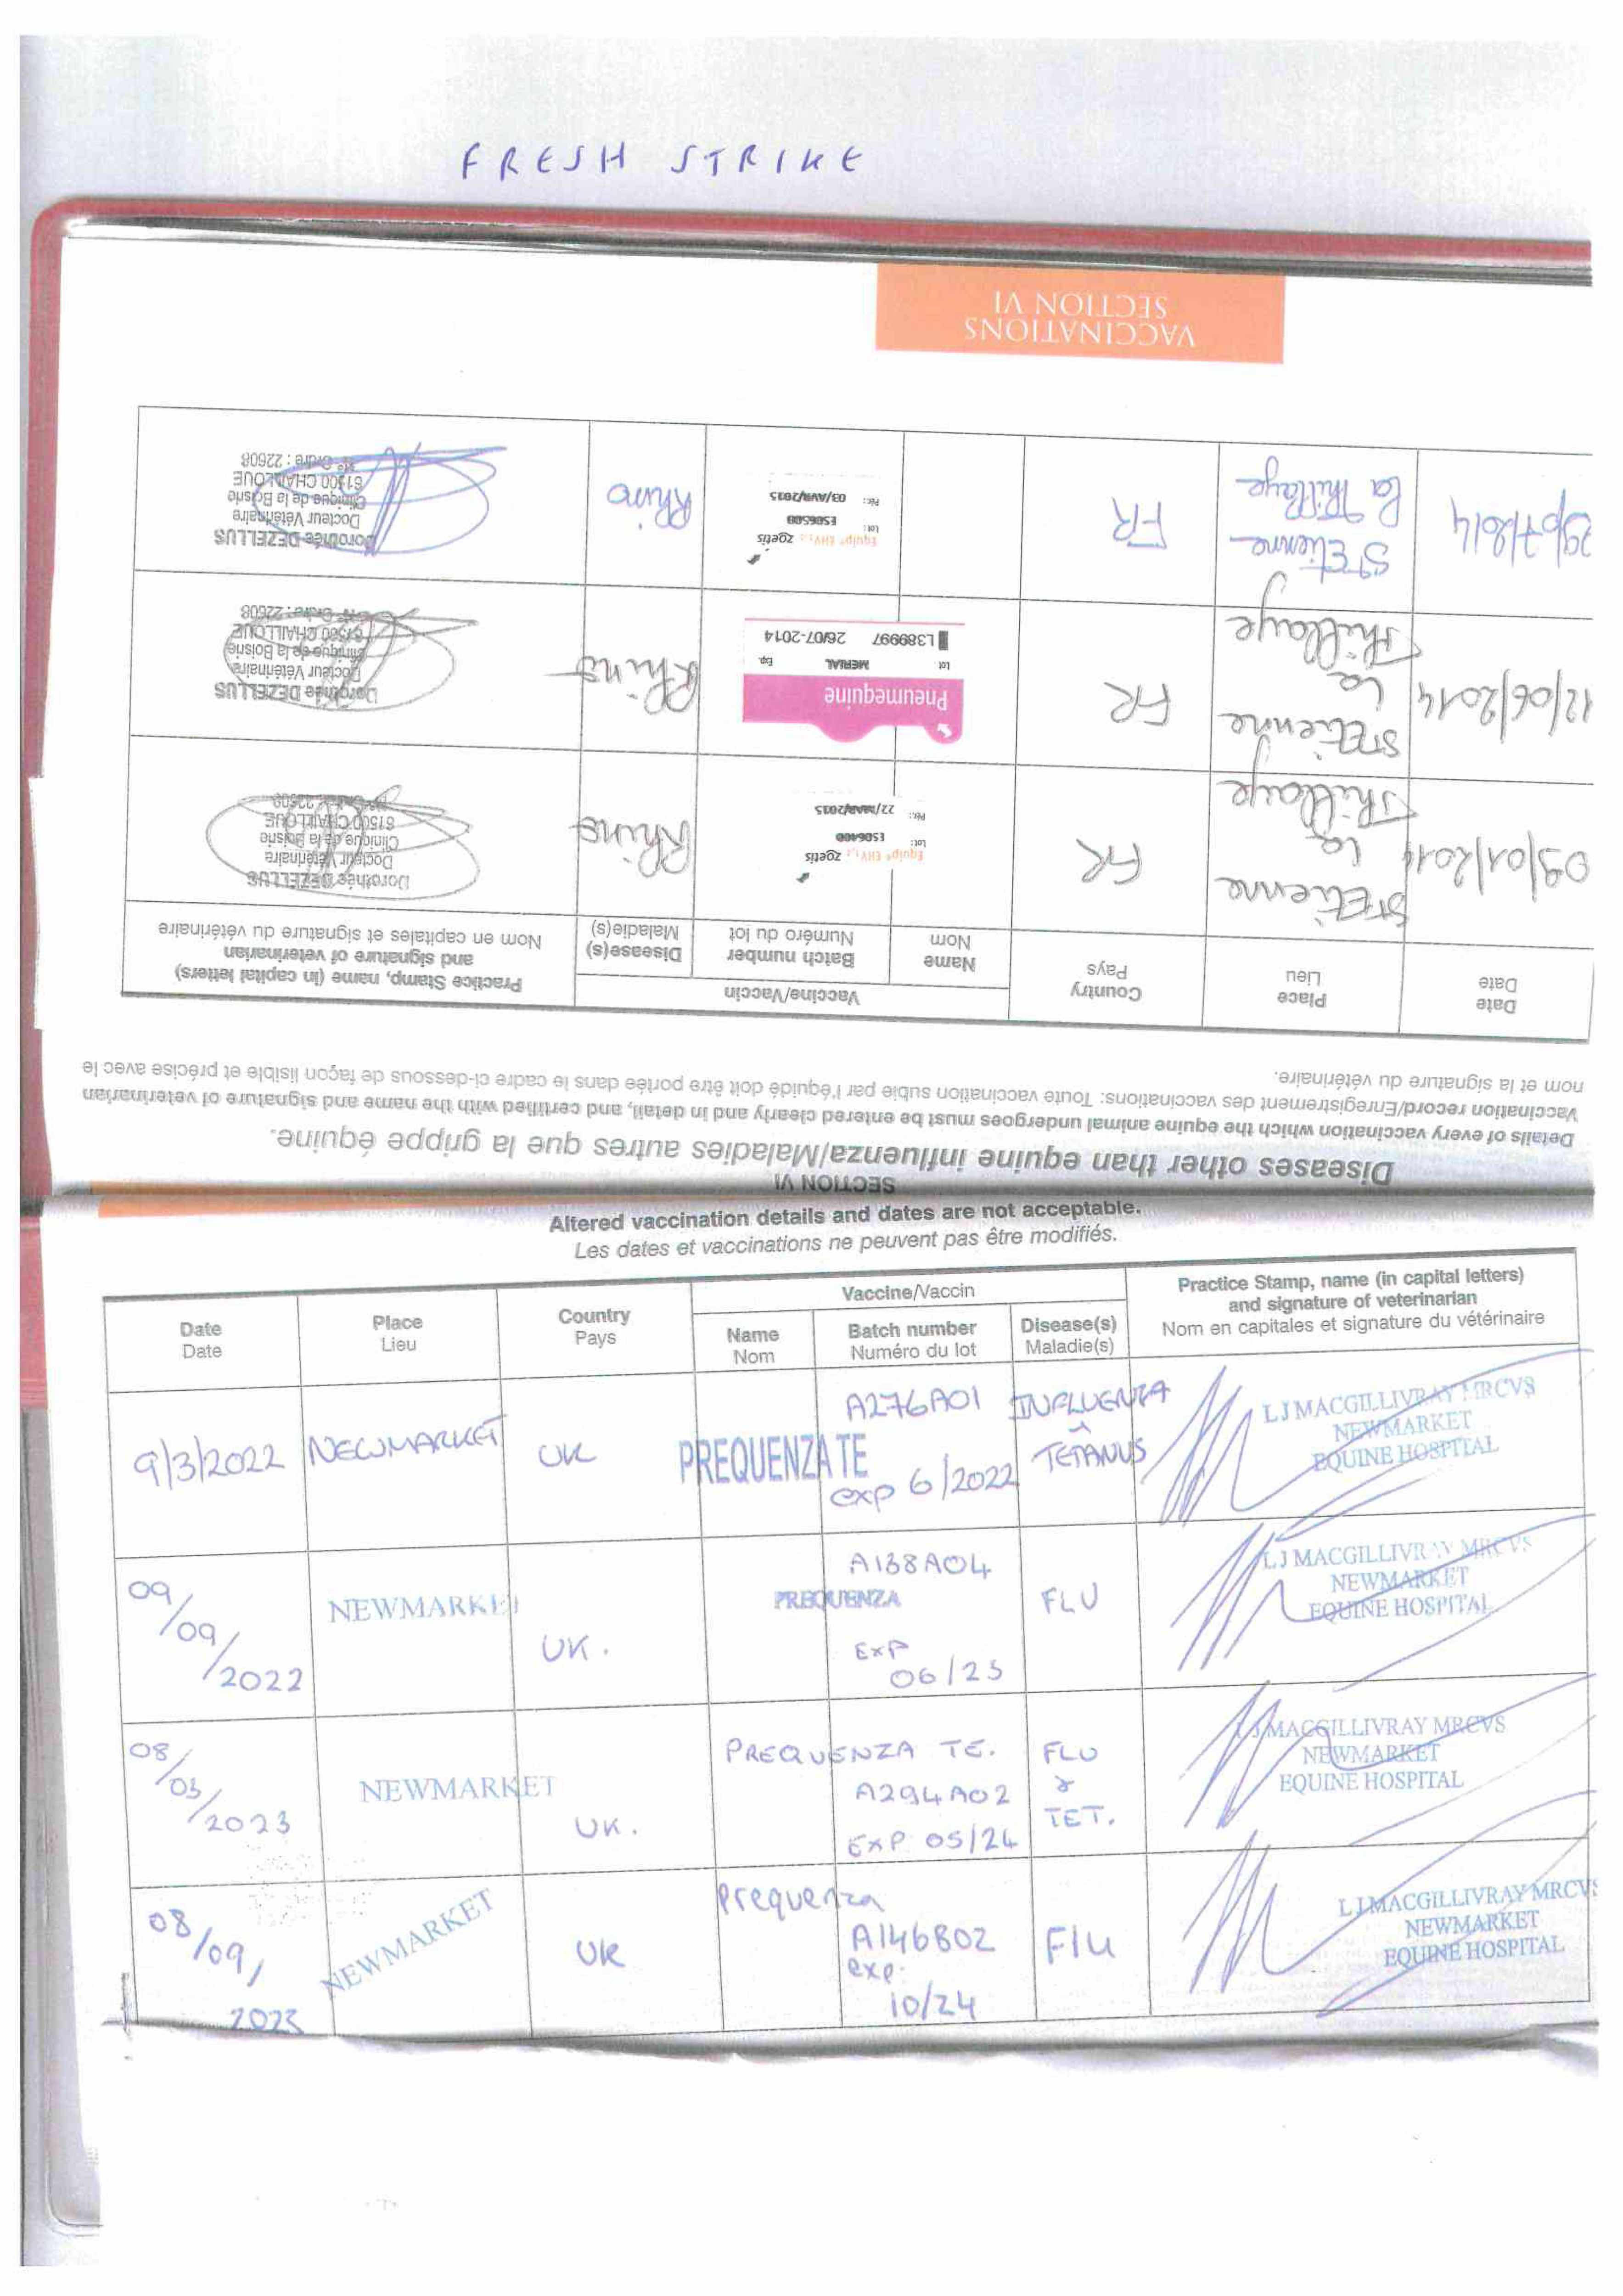 FRESH STRIKE
VACCINATIONS
SECTION VI
Diseases other than equine influenza/Maladies autres que la grippe équine.
Details of every vaccination which the equine animal undergoes must be entered clearly and in detail, and certified with the name and signature of veterinarian
Vaccination record/Enregistrement des vaccinations: Toute vaccination subie par l'équidé doit être portée dans le cadre ci-dessous de façon lisible et précise avec le
nom et la signature du vétérinaire.
Date
Date
Place
Lieu
Country
Pays
Vaccine/Vaccin
Name
Nom
Batch number
Numéro du lot
Disease(s)
Maladie(s)
Practice Stamp, name (in capital letters)
and signature of veterinarian
Nom en capitales et signature du vétérinaire
09/01/2014
St Etienne
la
Thillaye
FR
Equip® EHV zoetis
Lot: E506400
Pér.: 22/MAR/2015
Rhino
Dorothée DEZELLUS
Docteur Vétérinaire
Clinique de la Boisrie
61500 CHAILLOUE
12/06/2014
St Etienne
la
Thillaye
FR
Pneumequine
Lot MERIAL Exp.
L389997 26/07-2014
Rhino
Dorothée DEZELLUS
Docteur Vétérinaire
Clinique de la Boisrie
61500 CHAILLOUE
N° Ordre : 22608
29/07/2014
St Etienne
la Thillaye
FR
Equip® EHV zoetis
Lot: E506500
Pér.: 03/AVR/2015
Rhino
Dorothée DEZELLUS
Docteur Vétérinaire
Clinique de la Boisrie
61500 CHAILLOUE
N° Ordre : 22608
SECTION VI
Altered vaccination details and dates are not acceptable.
Les dates et vaccinations ne peuvent pas être modifiés.
Date
Date
Place
Lieu
Country
Pays
Vaccine/Vaccin
Name
Nom
Batch number
Numéro du lot
Disease(s)
Maladie(s)
Practice Stamp, name (in capital letters)
and signature of veterinarian
Nom en capitales et signature du vétérinaire
9/3/2022
NEWMARKET
UK
PREQUENZA TE
A276A01
exp 6/2022
INFLUENZA
&
TETANUS
LJ MACGILLIVRAY MRCVS
NEWMARKET
EQUINE HOSPITAL
09/09/2022
NEWMARKET
UK.
PREQUENZA
A138A04
EXP
06/23
FLU
LJ MACGILLIVRAY MRCVS
NEWMARKET
EQUINE HOSPITAL
08/03/2023
NEWMARKET
UK.
PREQUENZA TE.
A294A02
EXP 05/24
FLU
&
TET.
LJ MACGILLIVRAY MRCVS
NEWMARKET
EQUINE HOSPITAL
08/09/2023
NEWMARKET
UK
Prequenza
A146B02
exp.
10/24
Flu
LJ MACGILLIVRAY MRCVS
NEWMARKET
EQUINE HOSPITAL